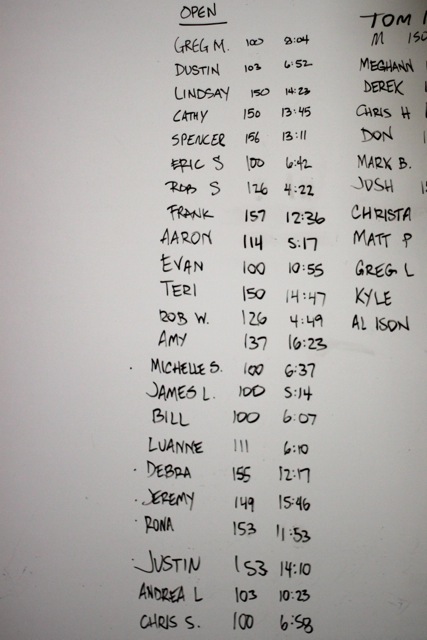 OPEN
GREG M. 100 8:04
DUSTIN 103 6:52
LINDSAY 150 14:23
CATHY 150 13:45
SPENCER 156 13:11
ERIC S 100 6:42
ROB S 126 4:22
FRANK 157 12:36
AARON 114 5:17
EVAN 100 10:55
TERI 150 14:47
ROB W. 126 4:49
AMY 137 16:23
· MICHELLE S. 100 6:37
JAMES L. 100 5:14
BILL 100 6:07
LUANNE 111 6:10
· DEBRA 155 12:17
· JEREMY 149 15:46
· RONA 153 11:53
· JUSTIN 153 14:10
ANDREA L 103 10:23
CHRIS S. 100 6:58
TOM
M 150
MEGHANN
DEREK
CHRIS H
DON
MARK B.
JOSH
CHRISTA
MATT P
GREG L
KYLE
ALISON